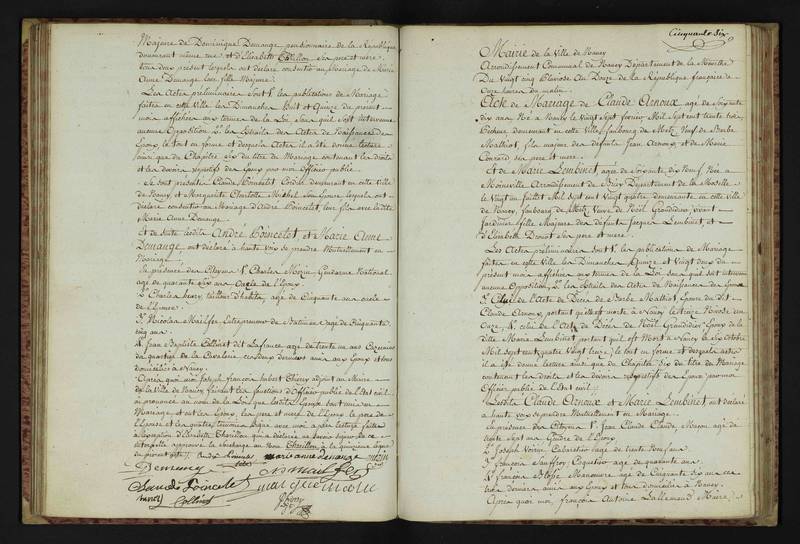 Majeure de Dominique Demange pensionnaire de la République
demeurant même rue et d'Elisabeth Thirillon ses pere et mere
tous deux present lesquels ont déclaré consentir au Mariage de Marie
Anne Demange leur fille Majeure.
Les Actes préliminaires sont 1° les publications de Mariage
faites en cette Ville les Dimanches huit et Quinze du present
mois affichées aux termes de la Loi sans qu'il soit intervenu
aucune Opposition 2° les Extraits des Actes de Naissances des
Epoux le tout en forme et desquels Actes il a été donné lecture
ainsi que du Chapitre six du titre du Mariage contenant les droits
et les devoirs respectifs des Epoux par moi Officier public
Se sont presentés Claude Poincelet Cordier demeurant en cette Ville
de Nancy et Marguerite Charlotte Michel son Epouse lesquels ont
déclaré consentir au Mariage d'André Poincelet leur fils avec ladite
Marie Anne Demange
Et de suite lesdits André Poincelet et Marie Anne
Demange ont déclaré à haute voix se prendre Mutuellement en
Mariage
En présence des Citoyens 1° Charles Gendarme National
agé de quarante six ans Oncle de l'Epoux
2° Charles henry tailleur d'habits agé de Cinquante ans oncle
de l'Epouse
3° Nicolas Mailfer Entrepreneur de Batiment agé de Cinquante
cinq ans
4° Jean Baptiste Collinet dit Lafrance agé de trente un ans
du quartier de la Cavalerie ces deux derniers amis aux Epoux et tous
domiciliés à Nancy
Après quoi moi Joseph françois hubert Thiery adjoint au Maire
de la Ville de Nancy faisant les fonctions d'Officier public de l'Etat civil
ai prononcé au nom de la Loi que lesdits Epoux sont unis en
Mariage et ont les Epoux, les pere et mere de l'Epoux le pere de
l'Epouse et les quatre témoins signé avec moi après lecture faite
à l'exception d'Elisabeth Thirillon qui a déclaré ne savoir signer de ce
interpellée approuvé la surcharge au Nom Thirillon à la quinzieme
du present acte
marie anne Demange
Demange
Claude Poincelet
henry
Collinet
Cinquante Six
Mairie de la Ville de Nancy
Arrondissement Communal de Nancy Département de la Meurthe
Du Vingt cinq Pluviose An Douze de la République française à
Onze heures du matin
Acte de Mariage de Claude Arnoux agé de Soixante
dix ans Né à Nancy le Vingt sept fevrier Mil Sept cent trente trois
demeurant en cette Ville faubourg de Metz Veuf de Barbe
Mathiot fils majeur des défunts Jean Arnoux et de Marie
Conrard ses pere et mere
Et de Marie Lembinet, agée de Soixante dix Neuf Née à
Moineville Arrondissement de Briey Département de la Moselle
le Vingt un Juillet Mil Sept cent Vingt quatre demeurante en cette Ville
de Nancy, faubourg de Metz Veuve de Noël Grandidier vivant
Jardinier fille Majeure des défunts Jacques Lembinet, et
d'Elisabeth ses pere et mere
Les Actes préliminaires sont 1° les publications de Mariage
faites en cette Ville les Dimanches Quinze et Vingt deux du
présent mois affichées aux termes de la Loi sans qu'il soit intervenu
aucune Opposition, 2° les Extraits des Actes de Naissances des Epoux
3° Celui de l'Acte de Décès de Barbe Mathiot Epouse du dit
Claude Arnoux portant qu'elle est morte à Nancy
Onze 4° celui de l'Acte de Décès de Noël Grandidier Epoux de la
dite Marie Lembinet portant qu'il est Mort à Nancy le six Octobre
Mil Sept cent quatre Vingt treize, le tout en forme et desquels actes
il a été donné lecture ainsi que du Chapitre Six du titre du Mariage
contenant les droits et les devoirs respectifs des Epoux par moi
Officier public de l'Etat civil
Lesdits Claude Arnoux et Marie Lembinet, ont declaré
à haute voix se prendre Mutuellement en Mariage
En présence des Citoyens 1° Jean Claude Claude Maçon agé de
trente Sept ans Gendre de l'Epoux
2° Joseph Noirel Cabaretier agé de trente Neuf ans
3° françois Coquetier agé de quarante ans
4° françois Manoeuvre agé de Cinquante dix ans ces
trois derniers amis aux Epoux et tous domiciliés à Nancy
Après quoi moi, françois Antoine Lallemand Maire